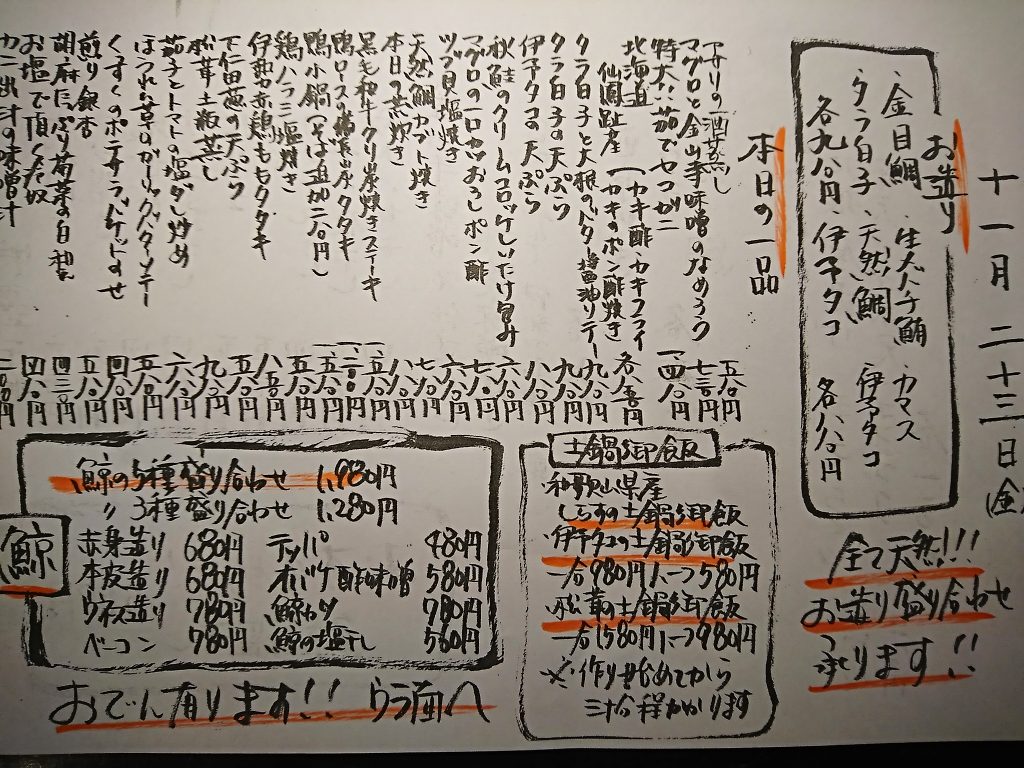 十一月二十三日(金)
お造り
・金目鯛 ・生本バチ鮪 ・カマス
・クラフ白子 ・天然鯛 ・伊予タコ
各九八〇円 ・伊予タコ 各八八〇円
全て天然!!!
お造り盛り合わせ
承ります!!
本日の一品
アサリの酒蒸し 五八〇円
マグロと金山寺味噌のなめろう 七三〇円
特大!茹でセコガニ 一、四八〇円
北海道
仙鳳趾産
カキ酢・カキフライ
カキのポン酢焼き 各八五〇円
クラ白子と大根のバター醤油ソテー 九八〇円
クラ白子の天ぷら 九八〇円
伊予タコの天ぷら 八八〇円
秋鮭のクリームコロッケしいたけ包み 六八〇円
マグロの一口カツおろしポン酢 七八〇円
ツブ貝塩焼き 六八〇円
天然鯛カブト焼き 七八〇円
本日の煮炊き 八八〇円
黒毛和牛クリ炭焼きステーキ 一、五八〇円
鴨ロースの炭タタキ
鴨小鍋(そば追加二八〇円)
鶏ハラミ塩焼き 五八〇円
伊勢赤鶏ももタタキ 八五〇円
下仁田葱の天ぷら 五八〇円
松茸土瓶蒸し 九八〇円
茄子とトマトの塩ダレ炒め 六八〇円
ほうれん草のガーリックバターソテー 五八〇円
くずくのポテサラッドのせ 四八〇円
煎り銀杏 五八〇円
胡麻たっぷり菊菜の白和え 四三〇円
お塩で頂く太奴 四八〇円
カニ出汁の味噌汁 二八〇円
土鍋御飯
・和歌山県産
しらすの土鍋御飯
・伊予タコの土鍋御飯
一合980円 1/2つ580円
・松茸の土鍋御飯
一合1580円 1/2つ980円
※作り始めてから
三十分程かかります
鯨
・鯨の5種盛り合わせ 1,980円
〃 3種盛り合わせ 1,280円
赤身造り 680円 テッパ 480円
本皮造り 680円 オバケ酢味噌 580円
ウネス造り 780円 鯨カツ 780円
ベーコン 780円 鯨の塩干し 560円
おでん有ります!! ウラ面へ